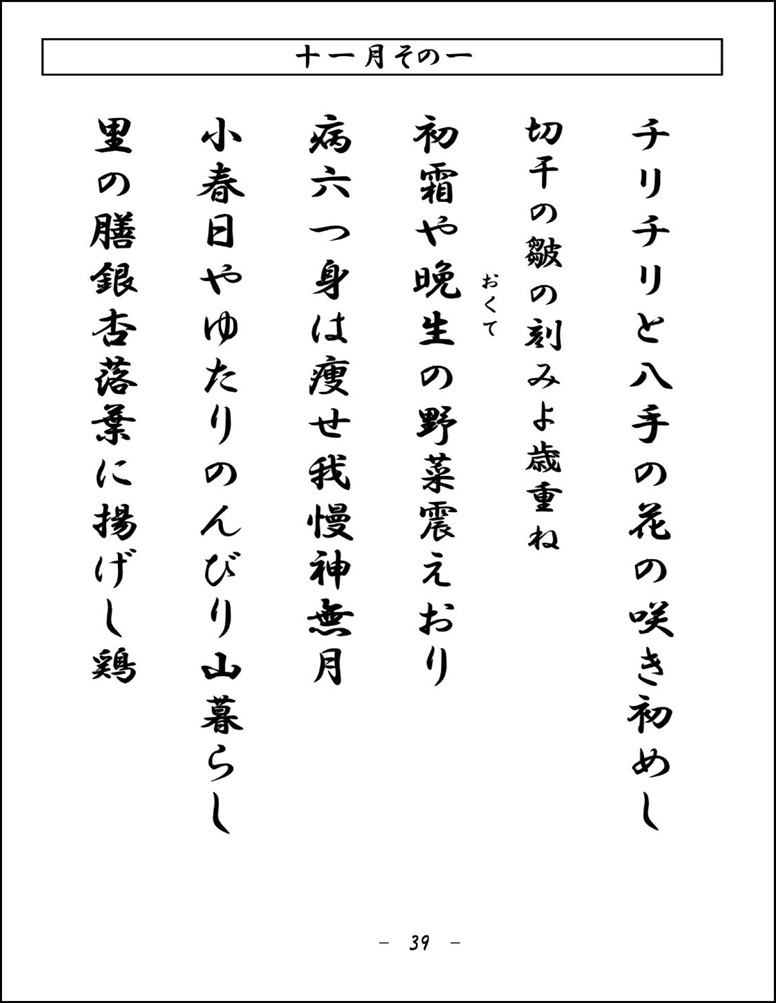 十一月その一
チリチリと八手の花の咲き初めし
切干の皺の刻みよ歳重ね
初霜や晩生の野菜震えおり
おくて
病六つ身は痩せ我慢神無月
小春日やゆたりのんびり山暮らし
里の膳銀杏落葉に揚げし鶏
- 39 -